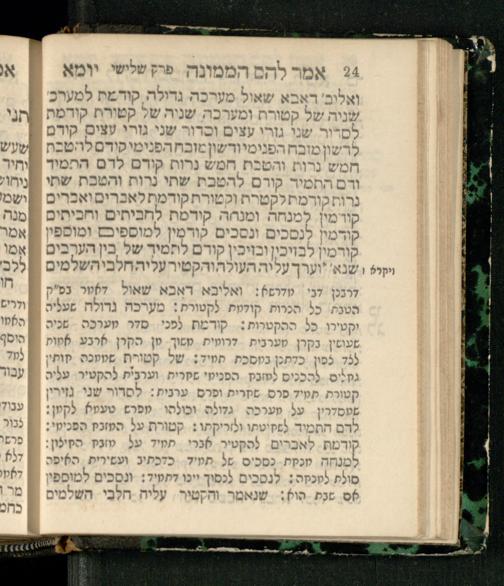 24 אמר להם הממונה פרק שלישי יומא
ואליב׳ דאבא שאול מערכה גדולה קודמת למערכ׳
שניה של קטורת ומערכה שניה של קטורת קודמת
לסדור שני גזרי עצים וסדור שני גזרי עצים קודם
לדשון מזבח הפנימי ודשון מזבח הפנימי קודם להטבת
חמש נרות והטבת חמש נרות קודם לדם התמיד
ודם התמיד קודם להטבת שתי נרות והטבת שתי
נרות קודמת לקטרת וקטורת קודמת לאברים ואברים
קודמין למנחה ומנחה קודמת לחביתים וחביתים
קודמין לנסכים ונסכים קודמין למוספים ומוספין
קודמין לבזיכין ובזיכין קודם לתמיד של בין הערבים
שנא׳ וערך עליה העולה והקטיר עליה חלבי השלמים
ויקרא ו
דרבנן דבי מדרשא: ואליבא דאבא שאול דאמר בס״ק
הטבת כל הנרות קודמת לקטורת: מערכה גדולה שעליה
יקטירו כל ההקטרות: קודמת לפני סדר מערכה שניה
שעושין בקרן מערבית דרומית משוך מן הקרן ארבע אמות
לצד לפון כדתנן במסכת תמיד: של קטורת שממנה חותין
גחלים להכניס למזבח הפנימי שחרית וערבית להקטיר עליה
קטורת תמיד פרס שחרית ופרס ערבית: לסדור שני גזירין
שמסדרין על מערכה גדולה וכולהו מפרש טעמא לקמן:
לדם התמיד לשחיטתו ולזריקתו: קטורת על המזבח הפנימי:
קודמת לאברים להקטיר אברי תמיד על מזבח החיצון:
למנחה מנחת נסכים של תמיד כדכתיב ועשירית האיפה
סולת למנחה: לנסכים לנסוך יינו דתמיד: ונסכים למוספין
אם שבת הוא: שנאמר והקטיר עליה חלבי השלמים